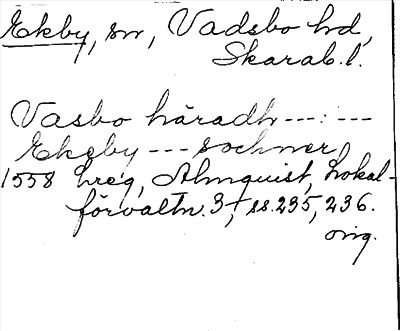 Ekby, sn, Vadsbo hd,
Skarab. l.
Vasbo häradh ---:---
Ekeby --- sochner
1558 hreg, Almquist, Lokal-
förvaltn. 3, ss. 235, 236.
orig.